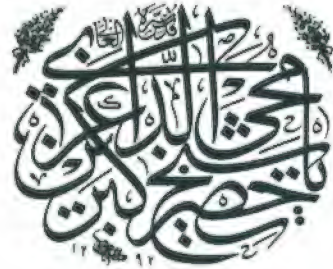 يا حضرت شيخ اكبر
محي الدين عربي
قدس سره العالي
١٢٩٢